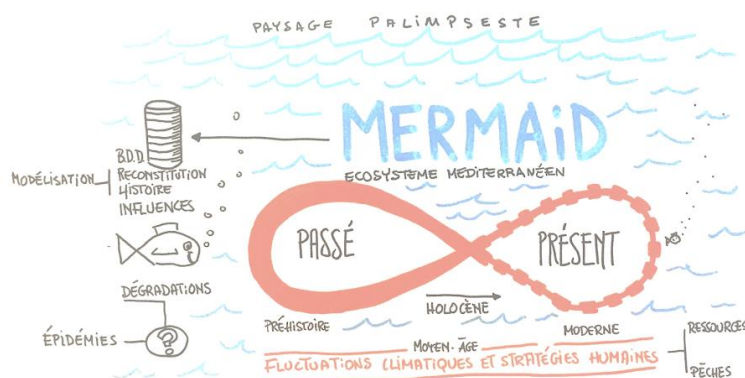 PAYSAGE PALIMPSESTE
MERMAID
ECOSYSTEME MÉDITERRANÉEN
B.D.D.
RECONSTITUTION
HISTOIRE
INFLUENCES
MODÉLISATION
PASSÉ
PRÉSENT
DÉGRADATIONS
ÉPIDÉMIES
?
HOLOCÈNE
PRÉHISTOIRE
MOYEN-ÂGE
MODERNE
FLUCTUATIONS CLIMATIQUES ET STRATÉGIES HUMAINES
RESSOURCES
PÊCHES